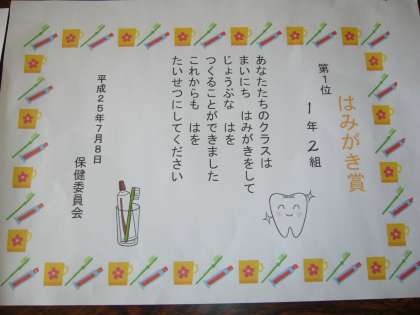 はみがき賞
第1位
1年2組
あなたたちのクラスは
まいにち　はみがきをして
じょうぶな　はを
つくることができました
これからも　はを
たいせつにしてください
平成25年7月8日
保健委員会